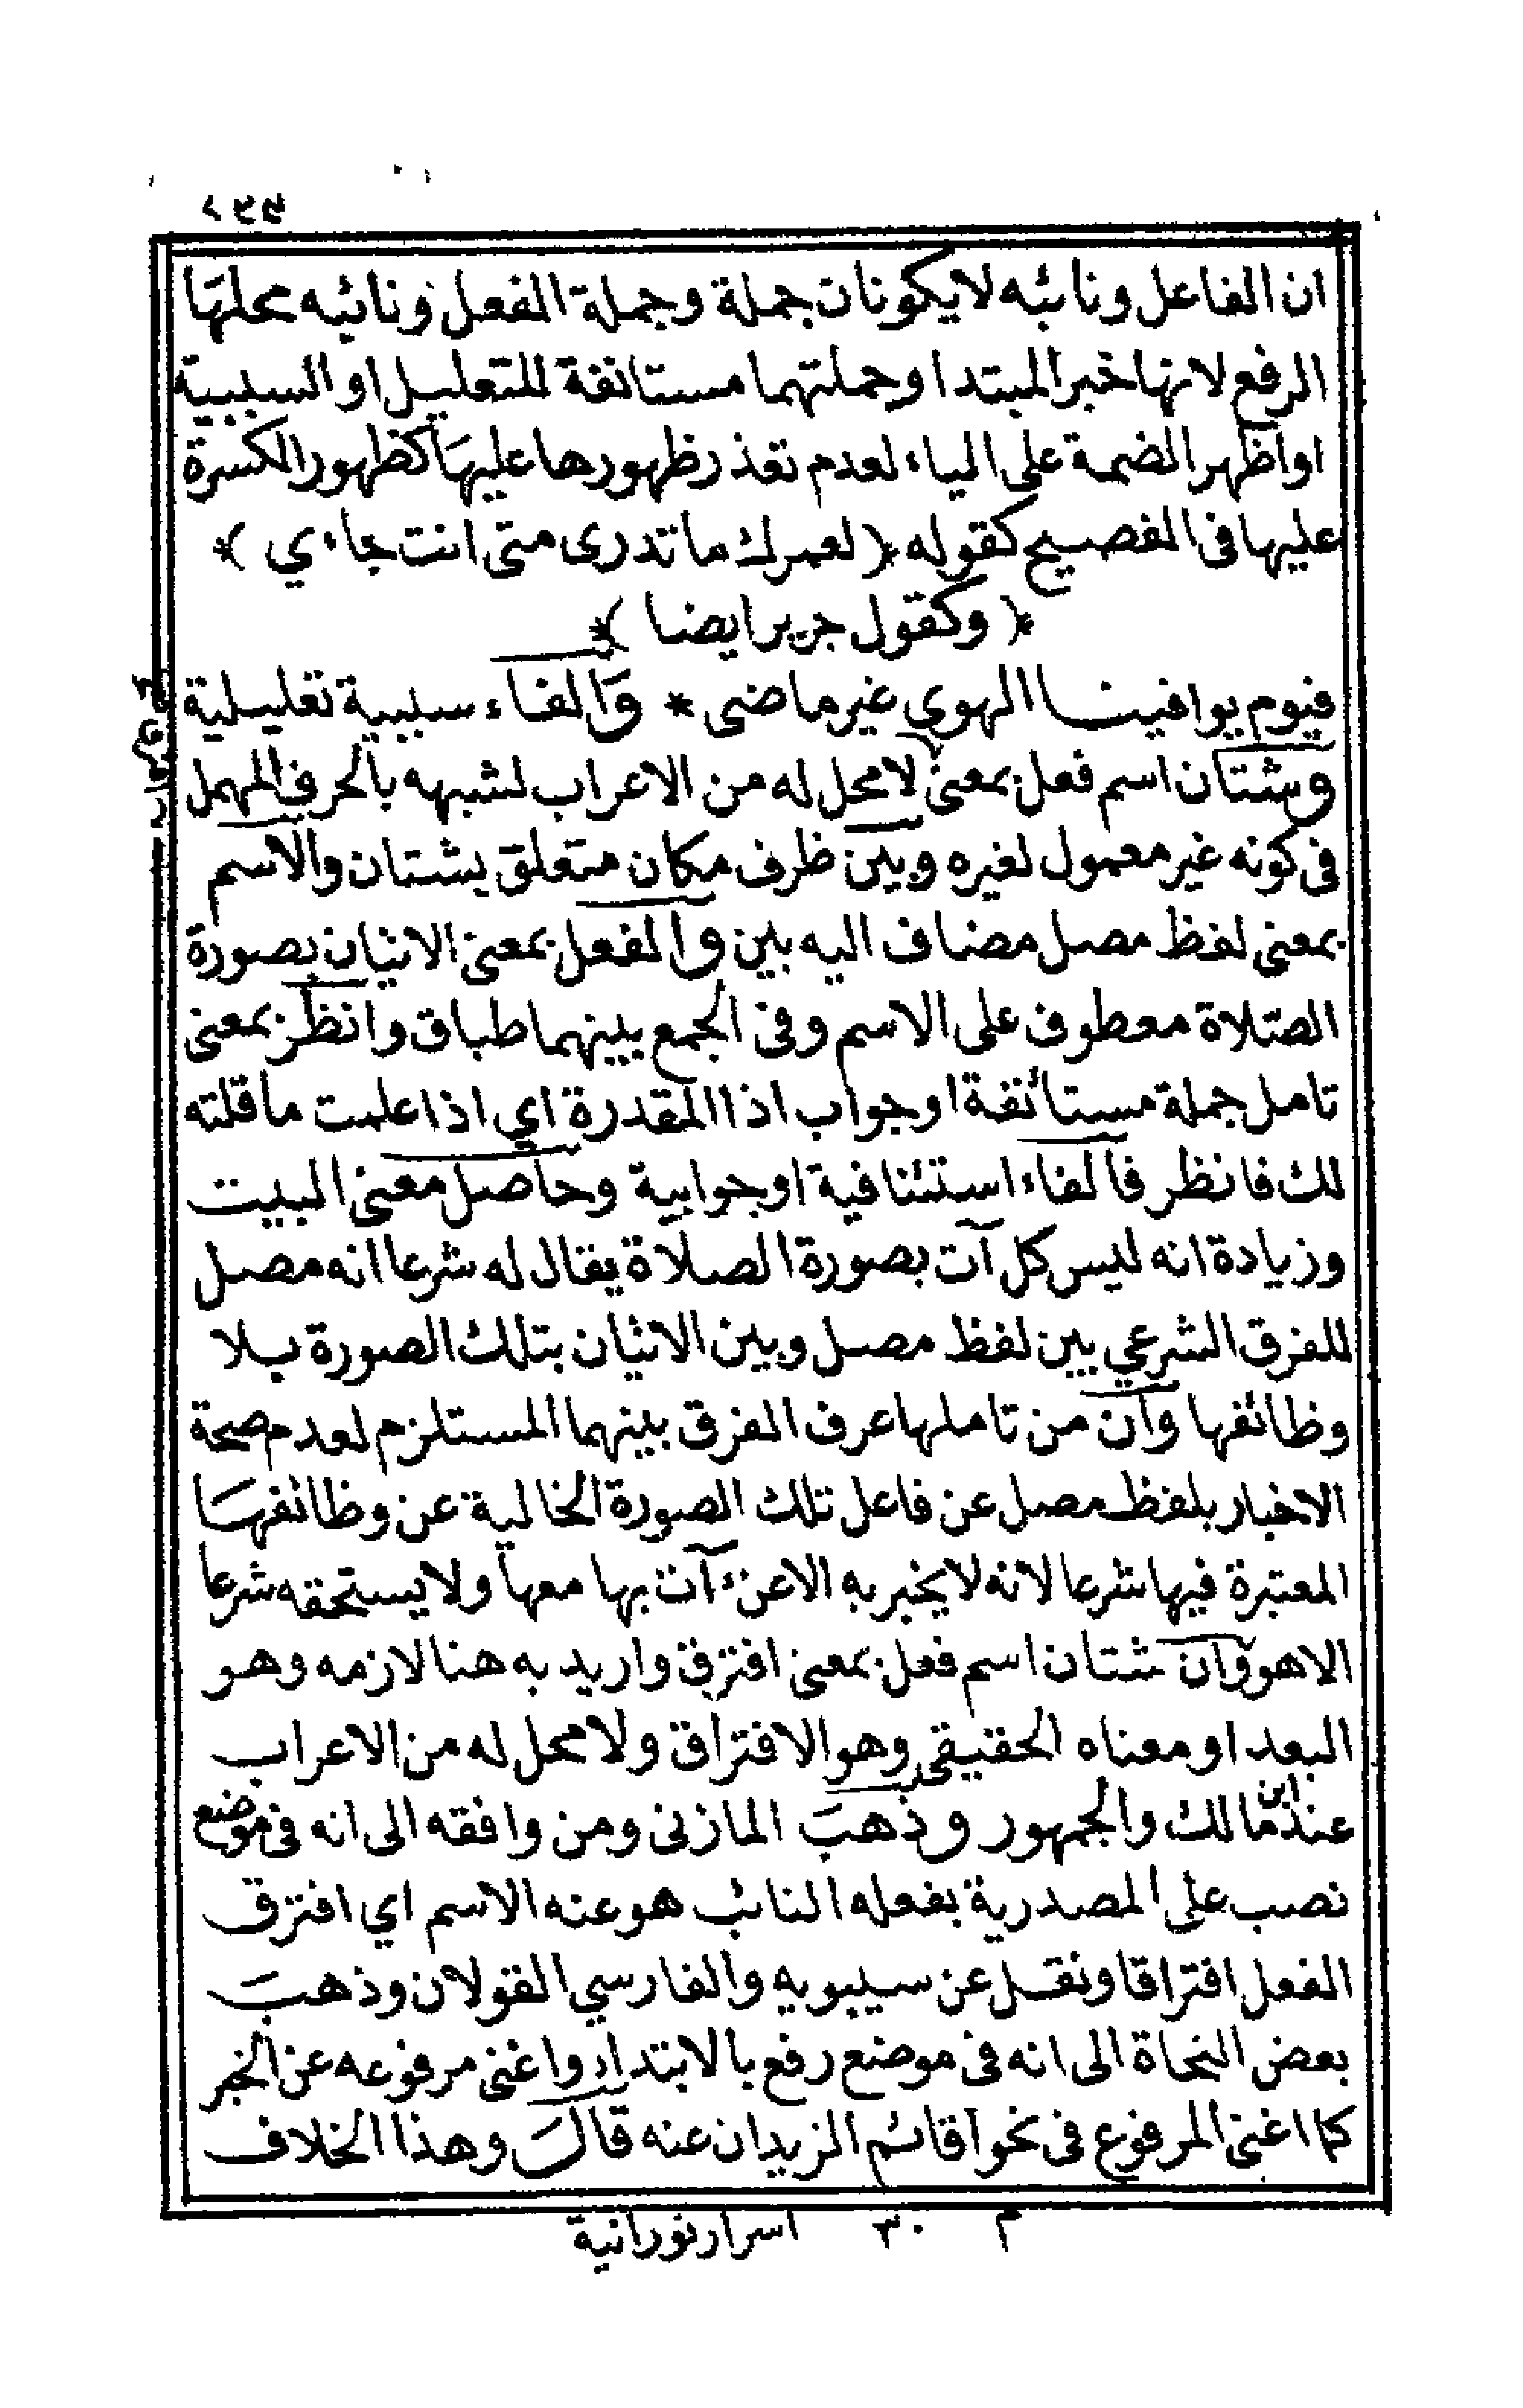 ان الفاعل ونائبه لا يكونان جملة وجملة الفعل ونائبه محلها
الرفع لانها خبر المبتدا وجملتهما مستانفة للتعليل او السببية
او اظهر الضمة على الياء لعدم تعذر ظهورها عليها كظهور الكسرة
عليها فى الفصيح كقوله * (لعمرك ما تدرى متى انت جاءي) *
* (وكقول جرير ايضا) *
فيوم يوافينا الهوي غير ماضى * والفاء سببية تعليلية
وشتان اسم فعل بمعنى لا محل له من الاعراب لشبهه بالحرف المهمل
فى كونه غير معمول لغيره وبين ظرف مكان متعلق بشتان والاسم
بمعنى لفظ مصل مضاف اليه بين والفعل بمعنى الاتيان بصورة
الصلاة معطوف على الاسم وفى الجمع بينهما طباق وانظر بمعنى
تامل جملة مستائفة او جواب اذا المقدرة اي اذا علمت ما قلته
لك فانظر فالفاء استئنافية او جوابية وحاصل معنى البيت
وزيادة انه ليس كل آت بصورة الصلاة يقال له شرعا انه مصل
للفرق الشرعي بين لفظ مصل وبين الاتيان بتلك الصورة بلا
وظائفها وان من تاملها عرف الفرق بينهما المستلزم لعدم صحة
الاخبار بلفظ مصل عن فاعل تلك الصورة الخالية عن وظائفها
المعتبرة فيها شرعا لانه لا يخبر به الا عن آت بها معها ولا يستحقه شرعا
الا هو وان شتان اسم فعل بمعنى افترق واريد به هنا لازمه وهو
البعد او معناه الحقيقى وهو الافتراق ولا محل له من الاعراب
عند ابن مالك والجمهور وذهب المازنى ومن وافقه الى انه فى موضع
نصب على المصدرية بفعله النائب هو عنه الاسم اي افترق
الفعل افتراقا ونقل عن سيبويه والفارسي القولان وذهب
بعض النحاة الى انه فى موضع رفع بالابتداء واغنى مرفوعه عن الخبر
كما اغنى المرفوع فى نحو اقائم الزيدان عنه قال وهذا الخلاف
م ٣٠ اسرار نورانية